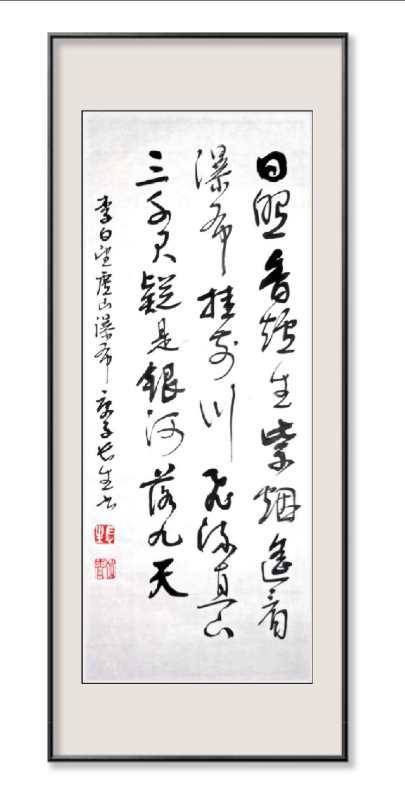 日照香炉生紫烟遥看
瀑布挂前川飞流直下
三千尺疑是银河落九天
李白望庐山瀑布 庚子长生书